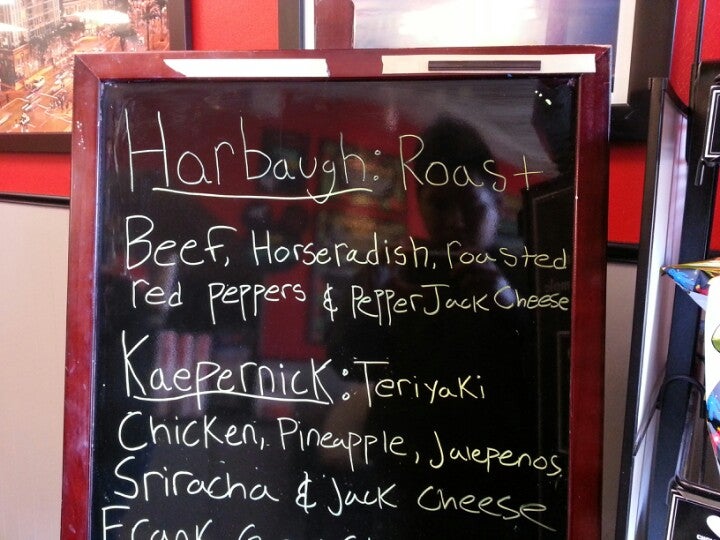 Harbaugh: Roast
Beef, Horseradish, roasted
red peppers & Pepper Jack Cheese
Kaepernick: Teriyaki
Chicken, Pineapple, Jalepenos,
Sriracha & Jack Cheese
Frank